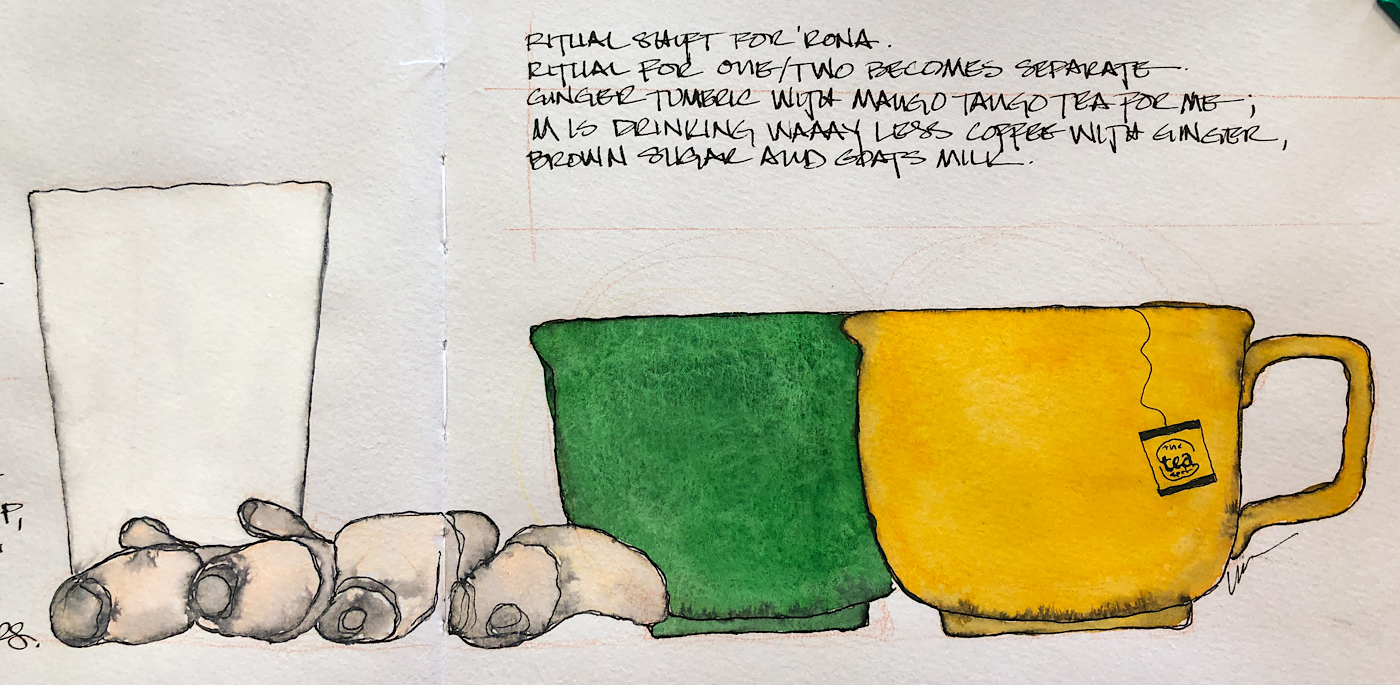 RITUAL SHIFT FOR 'RONA.
RITUAL FOR ONE/TWO BECOMES SEPARATE.
GINGER TUMERIC WITH MANGO TANGO TEA FOR ME;
M IS DRINKING WAAAY LESS COFFEE WITH GINGER,
BROWN SUGAR AND GOATS MILK.
the
tea
spot
P,